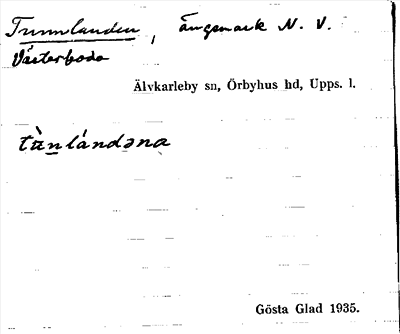 Tunnlanden, Ängsmark N. V.
Västerboda
Älvkarleby sn, Örbyhus hd, Upps. l.
tùnlándəna
Gösta Glad 1935.